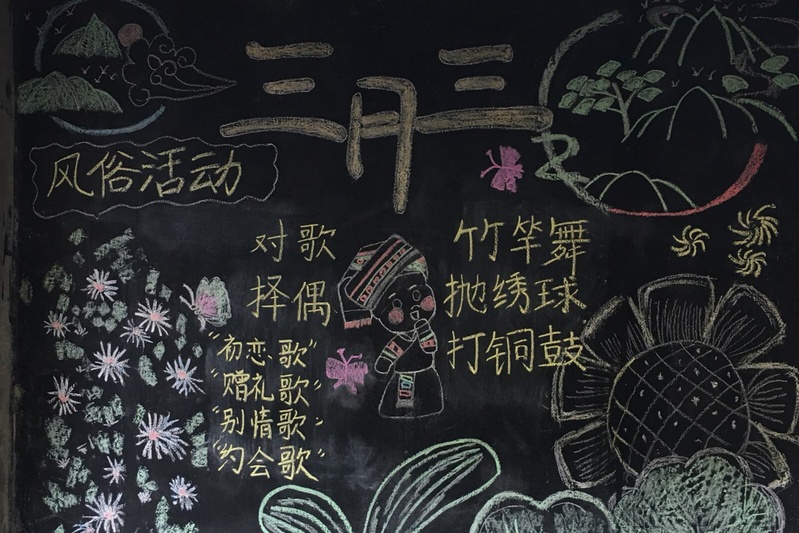 三月三
风俗活动
对歌
择偶
“初恋歌”
“赠礼歌”
“别情歌”
“约会歌”
竹竿舞
抛绣球
打铜鼓